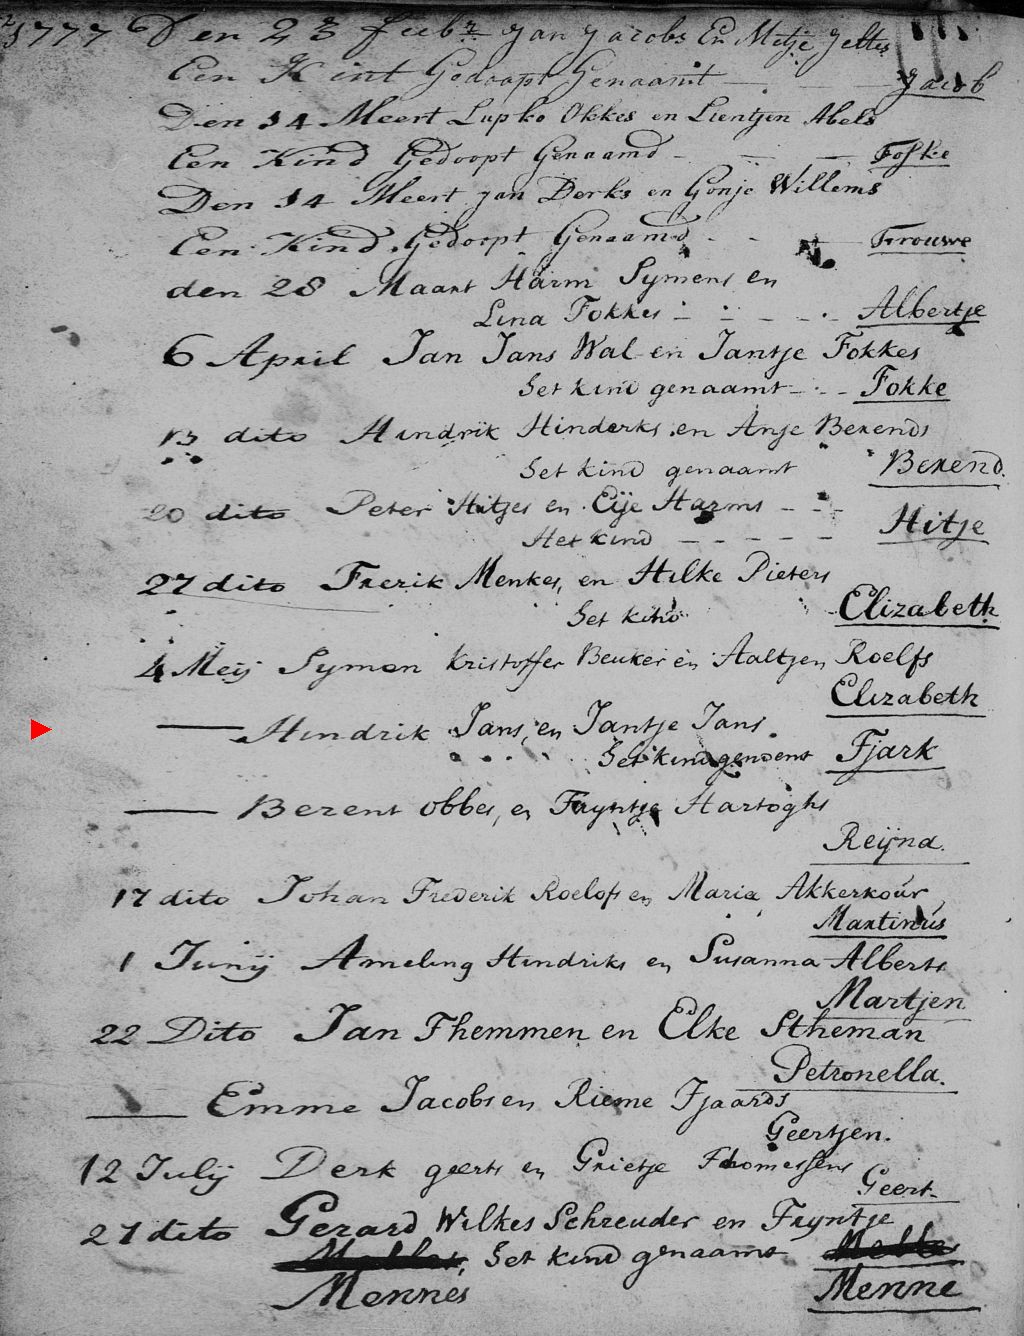 1777 Den 23 feebr Jan Jacobs En Metje Jeltes
Een Kint Gedoopt Genaamt Jacob
Den 14 Meert Lupko Okkes en Lientjen Abels
Een Kind Gedoopt Genaamd Foske
Den 14 Meert jan Derks en Gonje Willems
Een Kind Gedoopt Genaamd Trouwe
den 28 Maart Harm Symens en
Lina Fokkes - - - Albertje
6 April Jan Jans Wal en Jantje Fokkes
Het kind genaamt - - Fokke
13 dito Hindrik Hinderks en Anje Berends
Het kind genaamt Berend.
20 dito Peter Hitjes en Eije Harms - - -
Het kind - - - - - Hitje
27 dito Frerik Menkes, en Hilke Pieters
Het kind Elizabeth
4 Meij Symon Kristoffer Beuker en Aaltjen Roelfs
Elizabeth
— Hindrik Jans, en Jantje Jans
Het kind genoemt Tjark
— Berent obbes, en Tryntje Hartoghs
Reijna.
17 dito Johan Frederik Roelofs en Maria Akkerkour
Martinus
1 Junij Ameling Hindriks en Susanna Alberts
Martjen
22 Dito Jan Themmen en Elke Stheman
Petronella.
— Emme Jacobs en Rieme Tjaards
Geertjen.
12 Julij Derk geerts en Grietje Thomessens
Geert
27 dito Gerard Wilkes Schreuder en Tryntje
Het kind genaamt
Mennes Menne